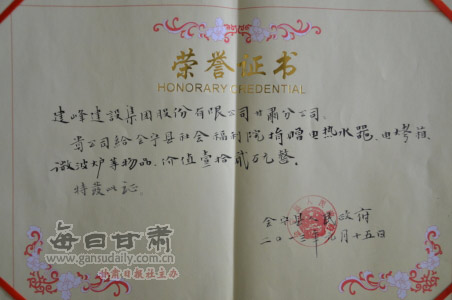 荣誉证书
HONORARY CREDENTIAL
建峰建設集团股份有限公司甘肃分公司。
贵公司给会宁县社会福利院捐赠电热水器、电烤箱、
微波炉等物品、价值壹拾贰万元整。
特发此证
会宁县人民政府
二〇一三年 月十五日
每日甘肃
www.gansudaily.com.cn
甘肃日报社主办